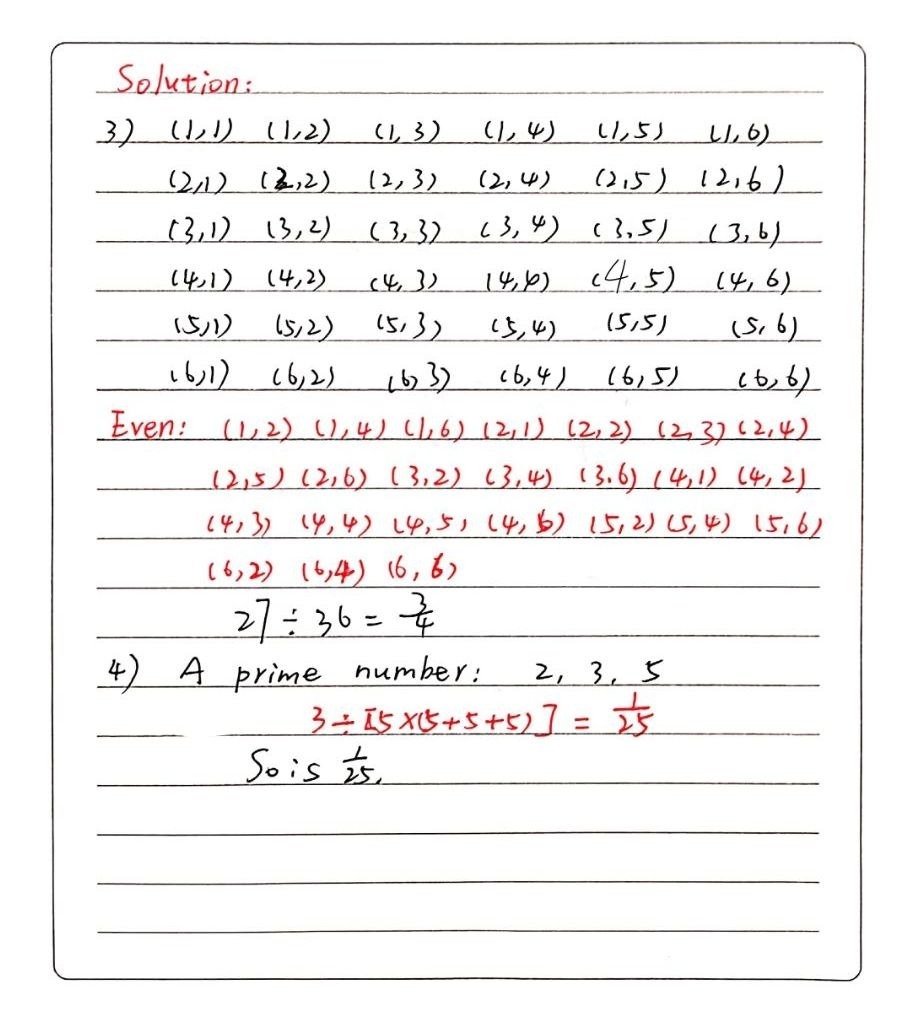 Solution:
3) (1,1) (1,2) (1,3) (1,4) (1,5) (1,6)
(2,1) (2,2) (2,3) (2,4) (2,5) (2,6)
(3,1) (3,2) (3,3) (3,4) (3,5) (3,6)
(4,1) (4,2) (4,3) (4,4) (4,5) (4,6)
(5,1) (5,2) (5,3) (5,4) (5,5) (5,6)
(6,1) (6,2) (6,3) (6,4) (6,5) (6,6)
Even: (1,2) (1,4) (1,6) (2,1) (2,2) (2,3) (2,4)
(2,5) (2,6) (3,2) (3,4) (3,6) (4,1) (4,2)
(4,3) (4,4) (4,5) (4,6) (5,2) (5,4) (5,6)
(6,2) (6,4) (6,6)
27 ÷ 36 = 3/4
4) A prime number: 2, 3, 5
3 ÷ [5 × (5+5+5)] = 1/25
So is 1/25.